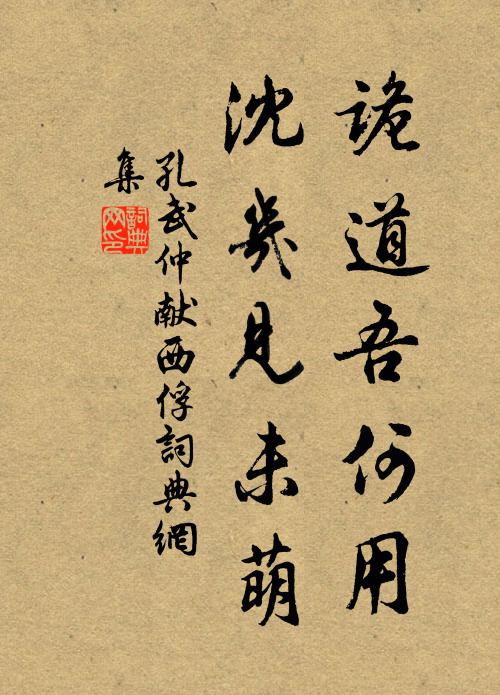 詭道吾何用
沈幾見未萌
孔武仲献西俘詞典網
集
詞典
网印